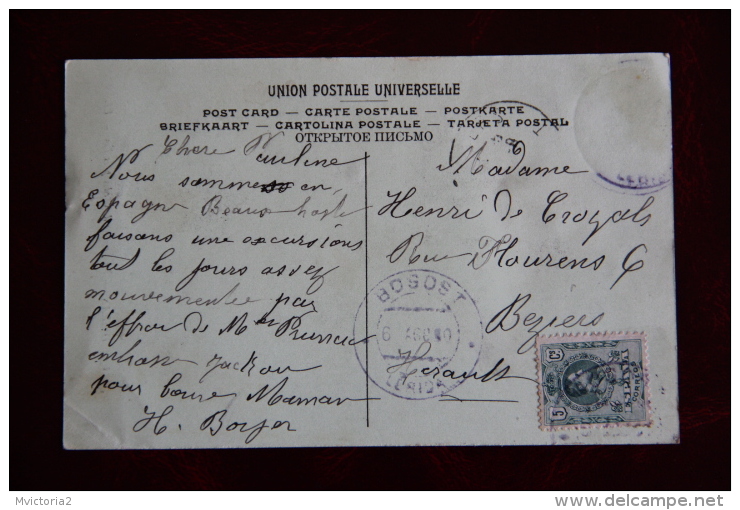 UNION POSTALE UNIVERSELLE
POST CARD — CARTE POSTALE — POSTKARTE
BRIEFKAART — CARTOLINA POSTALE — TARJETA POSTAL
ОТКРЫТОЕ ПИСЬМО
Chere Pauline
Nous sommes en
Espagne Beaux
faisans une excursions
tout les jours assez
mouvementée par
l'effroi de Mme
embrasse
pour bonne Maman
H. Boyer
Madame
Henri de Crozals
Rue Flourens 6
Béziers
Herault
BOSOST
6 AGO
LERIDA
LERIDA
5 Cs
CORREOS
Mvictoria2
www.delcampe.net